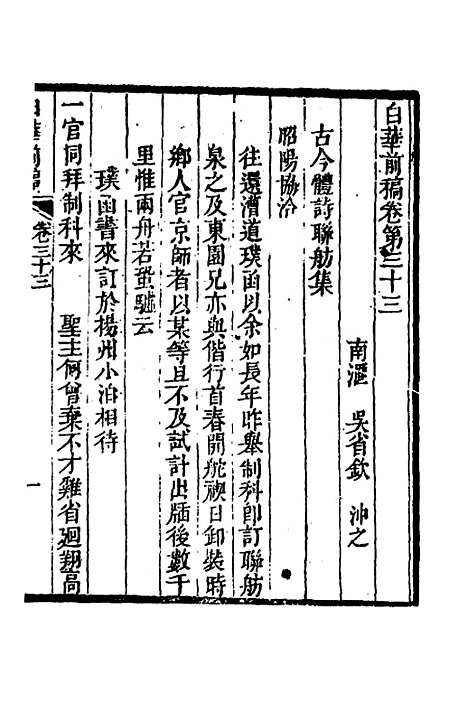 白華前稿卷第三十三
南滙 吳省欽 沖之
古今體詩聯舫集
昭陽協洽
往還漕道璞函以余如長年昨舉制科即訂聯舫
泉之及東園兄亦與偕行首春開舵禊日卸裝時
鄉人官京師者以某等且不及試計出牐後數千
里惟兩舟若蛩駏云
璞函書來訂於揚州小泊相待
一官同拜制科來 聖主何曾棄不才雞省廻翔高
白華前稿 卷三十三
一